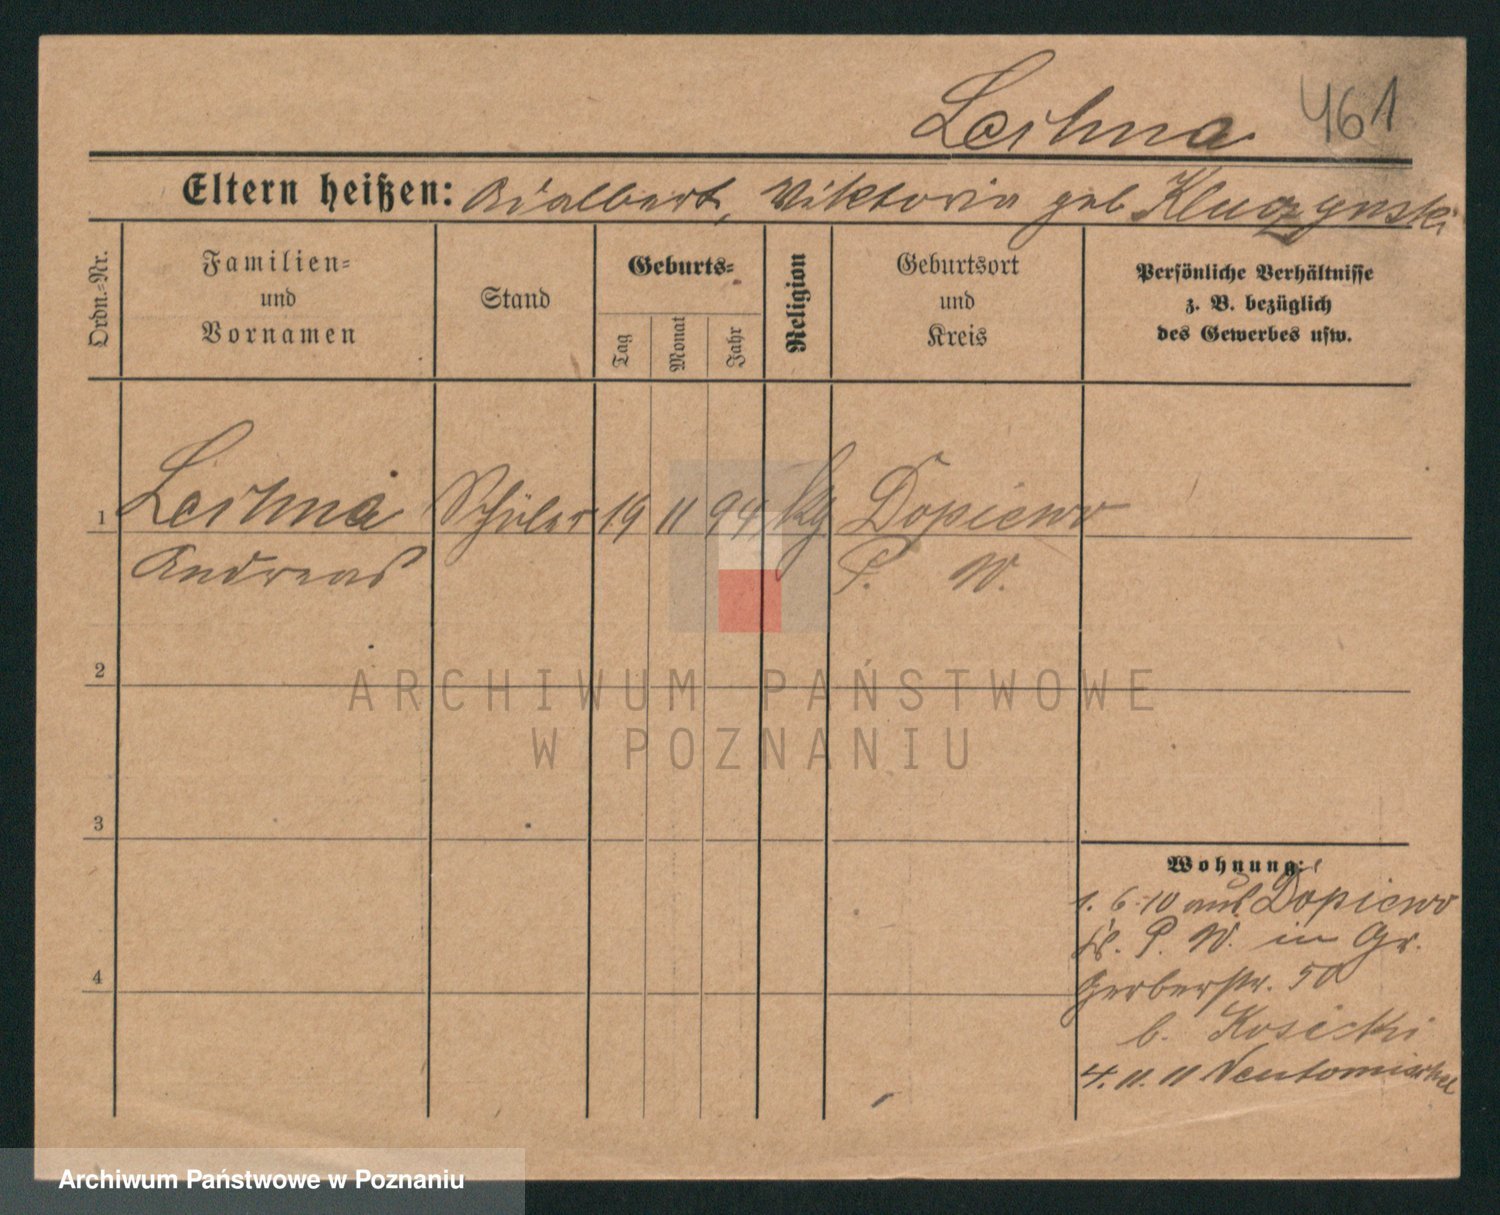 Leihna 461
Eltern heißen: Adalbert, Viktoria geb Kluczynski
Ordn.-Nr.
Familien-
und
Vornamen
Stand
Geburts-
Tag
Monat
Jahr
Religion
Geburtsort
und
Kreis
Persönliche Verhältnisse
z. B. bezüglich
des Gewerbes usw.
1 Leihna Schüler 19 11 94 Dopiewo
Andreas P. W.
2
3
4
Wohnung:
1. 6. 10 aus Dopiewo
Kr. P. W. in Gr.
Gerberstr. 50
b. Kosicki
4. 11. 11
ARCHIWUM PAŃSTWOWE
W POZNANIU
Archiwum Państwowe w Poznaniu